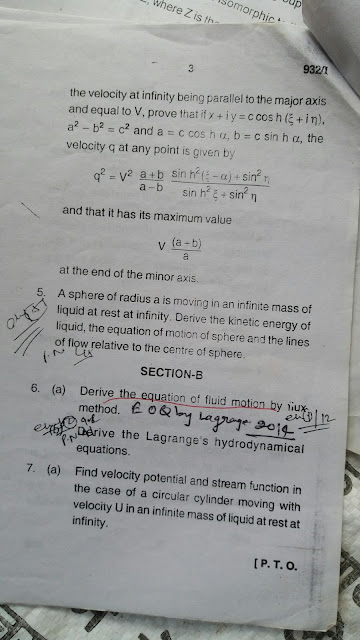 , where Z is the
somorphic
3
932/1
the velocity at infinity being parallel to the major axis
and equal to V, prove that if x + i y = c cos h (ξ + i η),
a² – b² = c² and a = c cos h α, b = c sin h α, the
velocity q at any point is given by
q² = V² (a+b)/(a–b) (sin h² (ξ – α) + sin² η)/(sin h² ξ + sin² η)
and that it has its maximum value
V (a – b)/a
at the end of the minor axis.
5. A sphere of radius a is moving in an infinite mass of
liquid at rest at infinity. Derive the kinetic energy of
liquid, the equation of motion of sphere and the lines
of flow relative to the centre of sphere.
SECTION-B
6. (a) Derive the equation of fluid motion by flux
method. E O Q by Lagrange 2014
Derive the Lagrange's hydrodynamical
equations.
7. (a) Find velocity potential and stream function in
the case of a circular cylinder moving with
velocity U in an infinite mass of liquid at rest at
infinity.
[P. T. O.